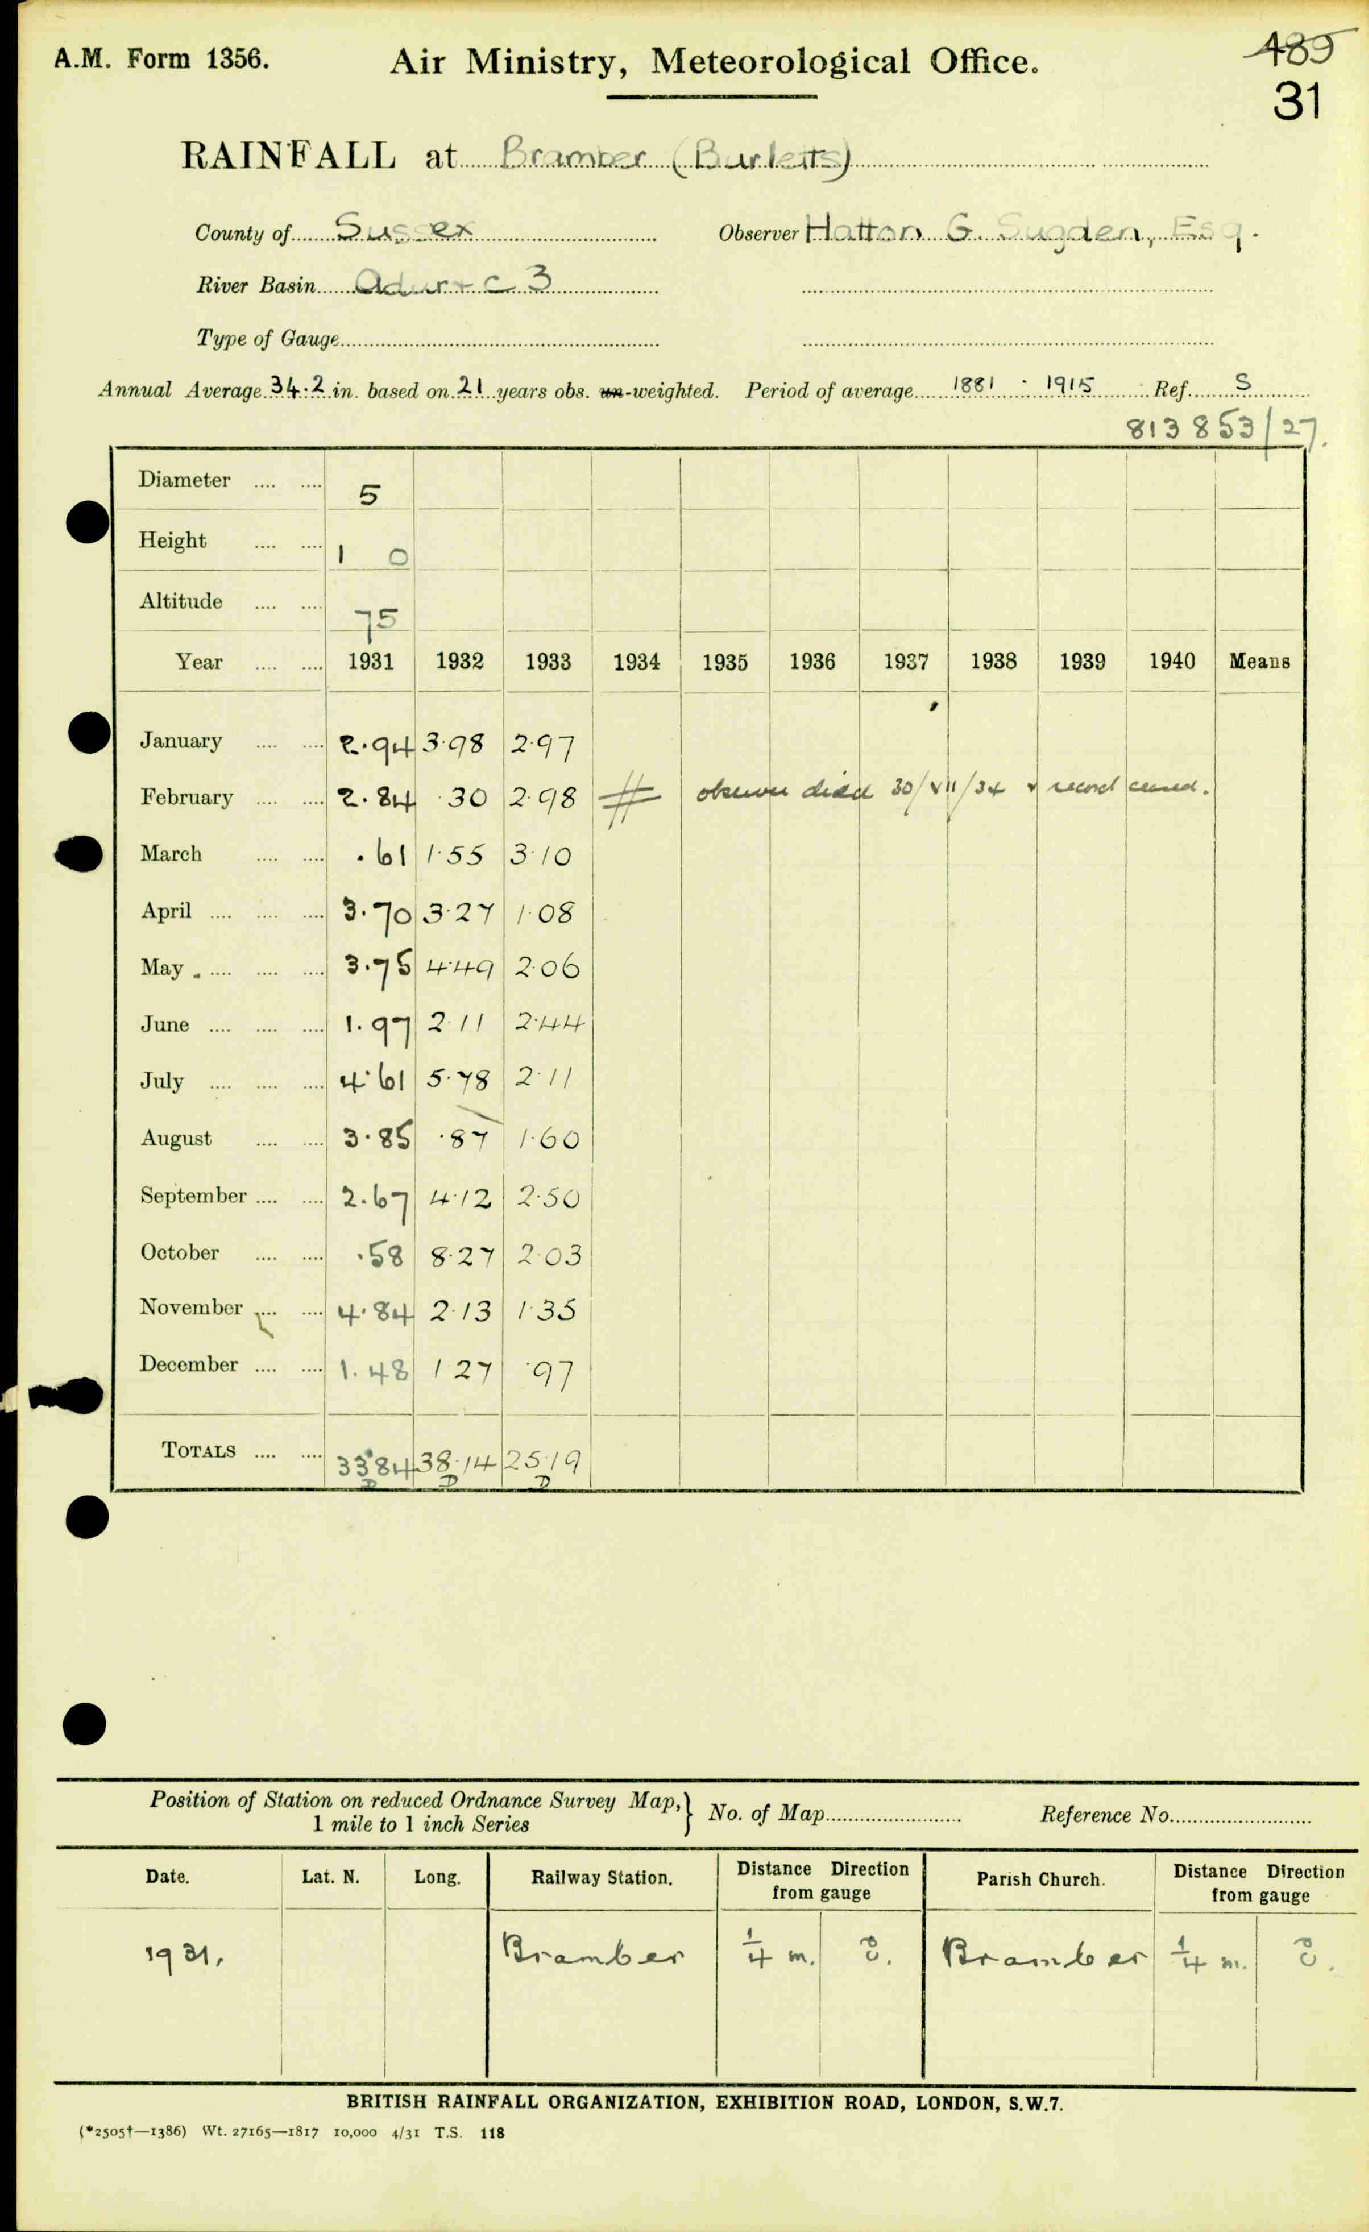 A.M. Form 1356.
Air Ministry, Meteorological Office.
489
31
RAINFALL at Bramber (Burletts)
County of Sussex Observer Hatton G. Sugden, Esq.
River Basin Adur + C 3
Type of Gauge
Annual Average 34.2 in. based on 21 years obs. un-weighted. Period of average 1881 - 1915 Ref. S
813 853/27.
Diameter .... .... 5
Height .... .... 1 0
Altitude .... .... 75
Year .... .... 1931 1932 1933 1934 1935 1936 1937 1938 1939 1940 Means
January .... .... 2.94 3.98 2.97
February .... .... 2.84 .30 2.98 # observer died 30/VII/34 & record ceased.
March .... .... .61 1.55 3.10
April .... .... .... 3.70 3.27 1.08
May .... .... .... 3.75 4.49 2.06
June .... .... .... 1.97 2.11 2.44
July .... .... .... 4.61 5.78 2.11
August .... .... 3.85 .87 1.60
September .... .... 2.67 4.12 2.50
October .... .... .58 8.27 2.03
November .... .... 4.84 2.13 1.35
December .... .... 1.48 1.27 .97
TOTALS .... .... 33.84 38.14 25.19
D D D
Position of Station on reduced Ordnance Survey Map, } No. of Map Reference No.
1 mile to 1 inch Series
Date. Lat. N. Long. Railway Station. Distance Direction from gauge Parish Church. Distance Direction from gauge
1931. Bramber 1/4 m. Bramber 1/4 m.
BRITISH RAINFALL ORGANIZATION, EXHIBITION ROAD, LONDON, S.W.7.
(*2505†—1386) Wt. 27165—1817 10,000 4/31 T.S. 118